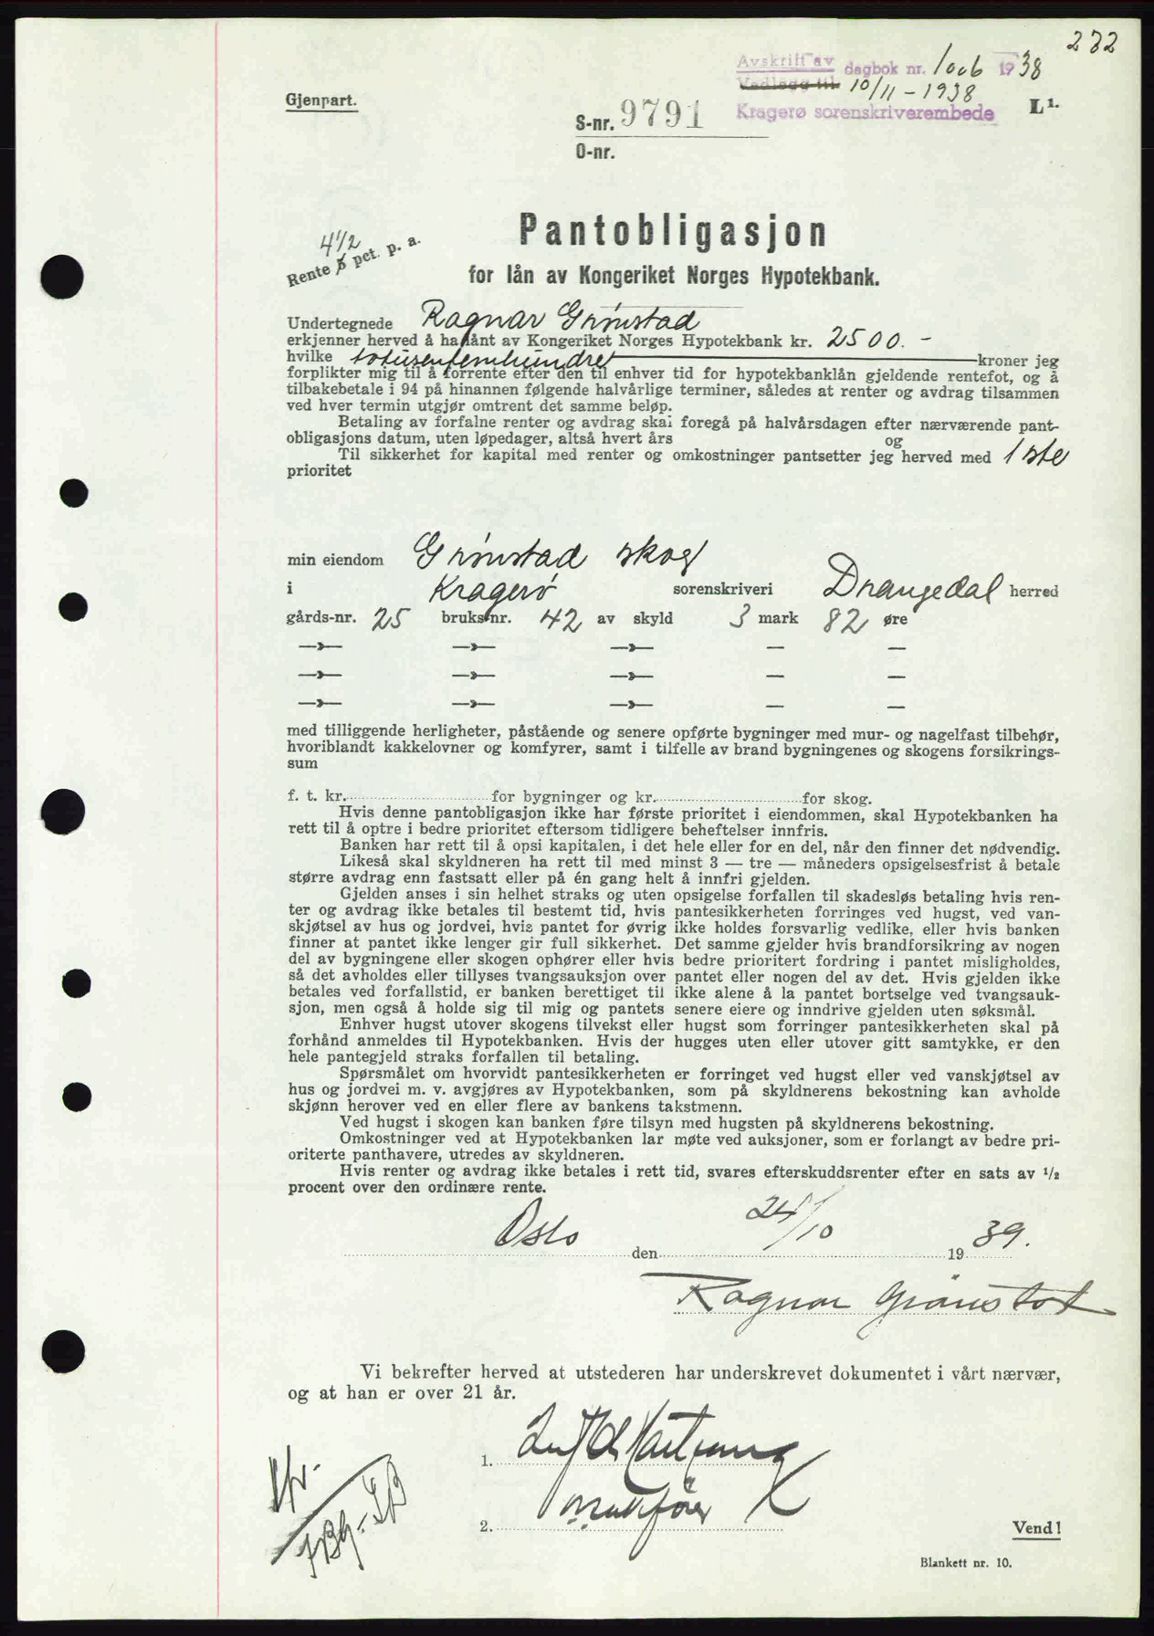 232
Avskrift av
Vedlegg til
dagbok nr. 1006 1938
10/11-1938
Kragerø sorenskriverembede
L 1.
Gjenpart.
S-nr. 9791
O-nr.
Pantobligasjon
for lån av Kongeriket Norges Hypotekbank.
4 1/2
Rente 5 pct. p. a.
Undertegnede Ragnar Grönstad
erkjenner herved å ha lånt av Kongeriket Norges Hypotekbank kr. 2500.-
hvilke totusenfemhundre kroner jeg
forplikter mig til å forrente efter den til enhver tid for hypotekbanklån gjeldende rentefot, og å
tilbakebetale i 94 på hinannen følgende halvårlige terminer, således at renter og avdrag tilsammen
ved hver termin utgjør omtrent det samme beløp.
Betaling av forfalne renter og avdrag skal foregå på halvårsdagen efter nærværende pant-
obligasjons datum, uten løpedager, altså hvert års og
Til sikkerhet for kapital med renter og omkostninger pantsetter jeg herved med 1ste
prioritet
min eiendom Grönstad skog
i Kragerö sorenskriveri Drangedal herred
gårds-nr. 25 bruks-nr. 42 av skyld 3 mark 82 øre
med tilliggende herligheter, påstående og senere opførte bygninger med mur- og nagelfast tilbehør,
hvoriblandt kakkelovner og komfyrer, samt i tilfelle av brand bygningenes og skogens forsikrings-
sum
f. t. kr. for bygninger og kr. for skog.
Hvis denne pantobligasjon ikke har første prioritet i eiendommen, skal Hypotekbanken ha
rett til å optre i bedre prioritet eftersom tidligere beheftelser innfris.
Banken har rett til å opsi kapitalen, i det hele eller for en del, når den finner det nødvendig.
Likeså skal skyldneren ha rett til med minst 3 — tre — måneders opsigelsesfrist å betale
større avdrag enn fastsatt eller på én gang helt å innfri gjelden.
Gjelden anses i sin helhet straks og uten opsigelse forfallen til skadesløs betaling hvis ren-
ter og avdrag ikke betales til bestemt tid, hvis pantesikkerheten forringes ved hugst, ved van-
skjøtsel av hus og jordvei, hvis pantet for øvrig ikke holdes forsvarlig vedlike, eller hvis banken
finner at pantet ikke lenger gir full sikkerhet. Det samme gjelder hvis brandforsikring av nogen
del av bygningene eller skogen ophører eller hvis bedre prioritert fordring i pantet misligholdes,
så det avholdes eller tillyses tvangsauksjon over pantet eller nogen del av det. Hvis gjelden ikke
betales ved forfallstid, er banken berettiget til ikke alene å la pantet bortselge ved tvangsauk-
sjon, men også å holde sig til mig og pantets senere eiere og inndrive gjelden uten søksmål.
Enhver hugst utover skogens tilvekst eller hugst som forringer pantesikkerheten skal på
forhånd anmeldes til Hypotekbanken. Hvis der hugges uten eller utover gitt samtykke, er den
hele pantegjeld straks forfallen til betaling.
Spørsmålet om hvorvidt pantesikkerheten er forringet ved hugst eller ved vanskjøtsel av
hus og jordvei m. v. avgjøres av Hypotekbanken, som på skyldnerens bekostning kan avholde
skjønn herover ved en eller flere av bankens takstmenn.
Ved hugst i skogen kan banken føre tilsyn med hugsten på skyldnerens bekostning.
Omkostninger ved at Hypotekbanken lar møte ved auksjoner, som er forlangt av bedre pri-
oriterte panthavere, utredes av skyldneren.
Hvis renter og avdrag ikke betales i rett tid, svares efterskuddsrenter efter en sats av 1/2
procent over den ordinære rente.
Oslo den /10 1939.
Ragnar Grönstad
Vi bekrefter herved at utstederen har underskrevet dokumentet i vårt nærvær,
og at han er over 21 år.
1.
2.
Vend!
Blankett nr. 10.